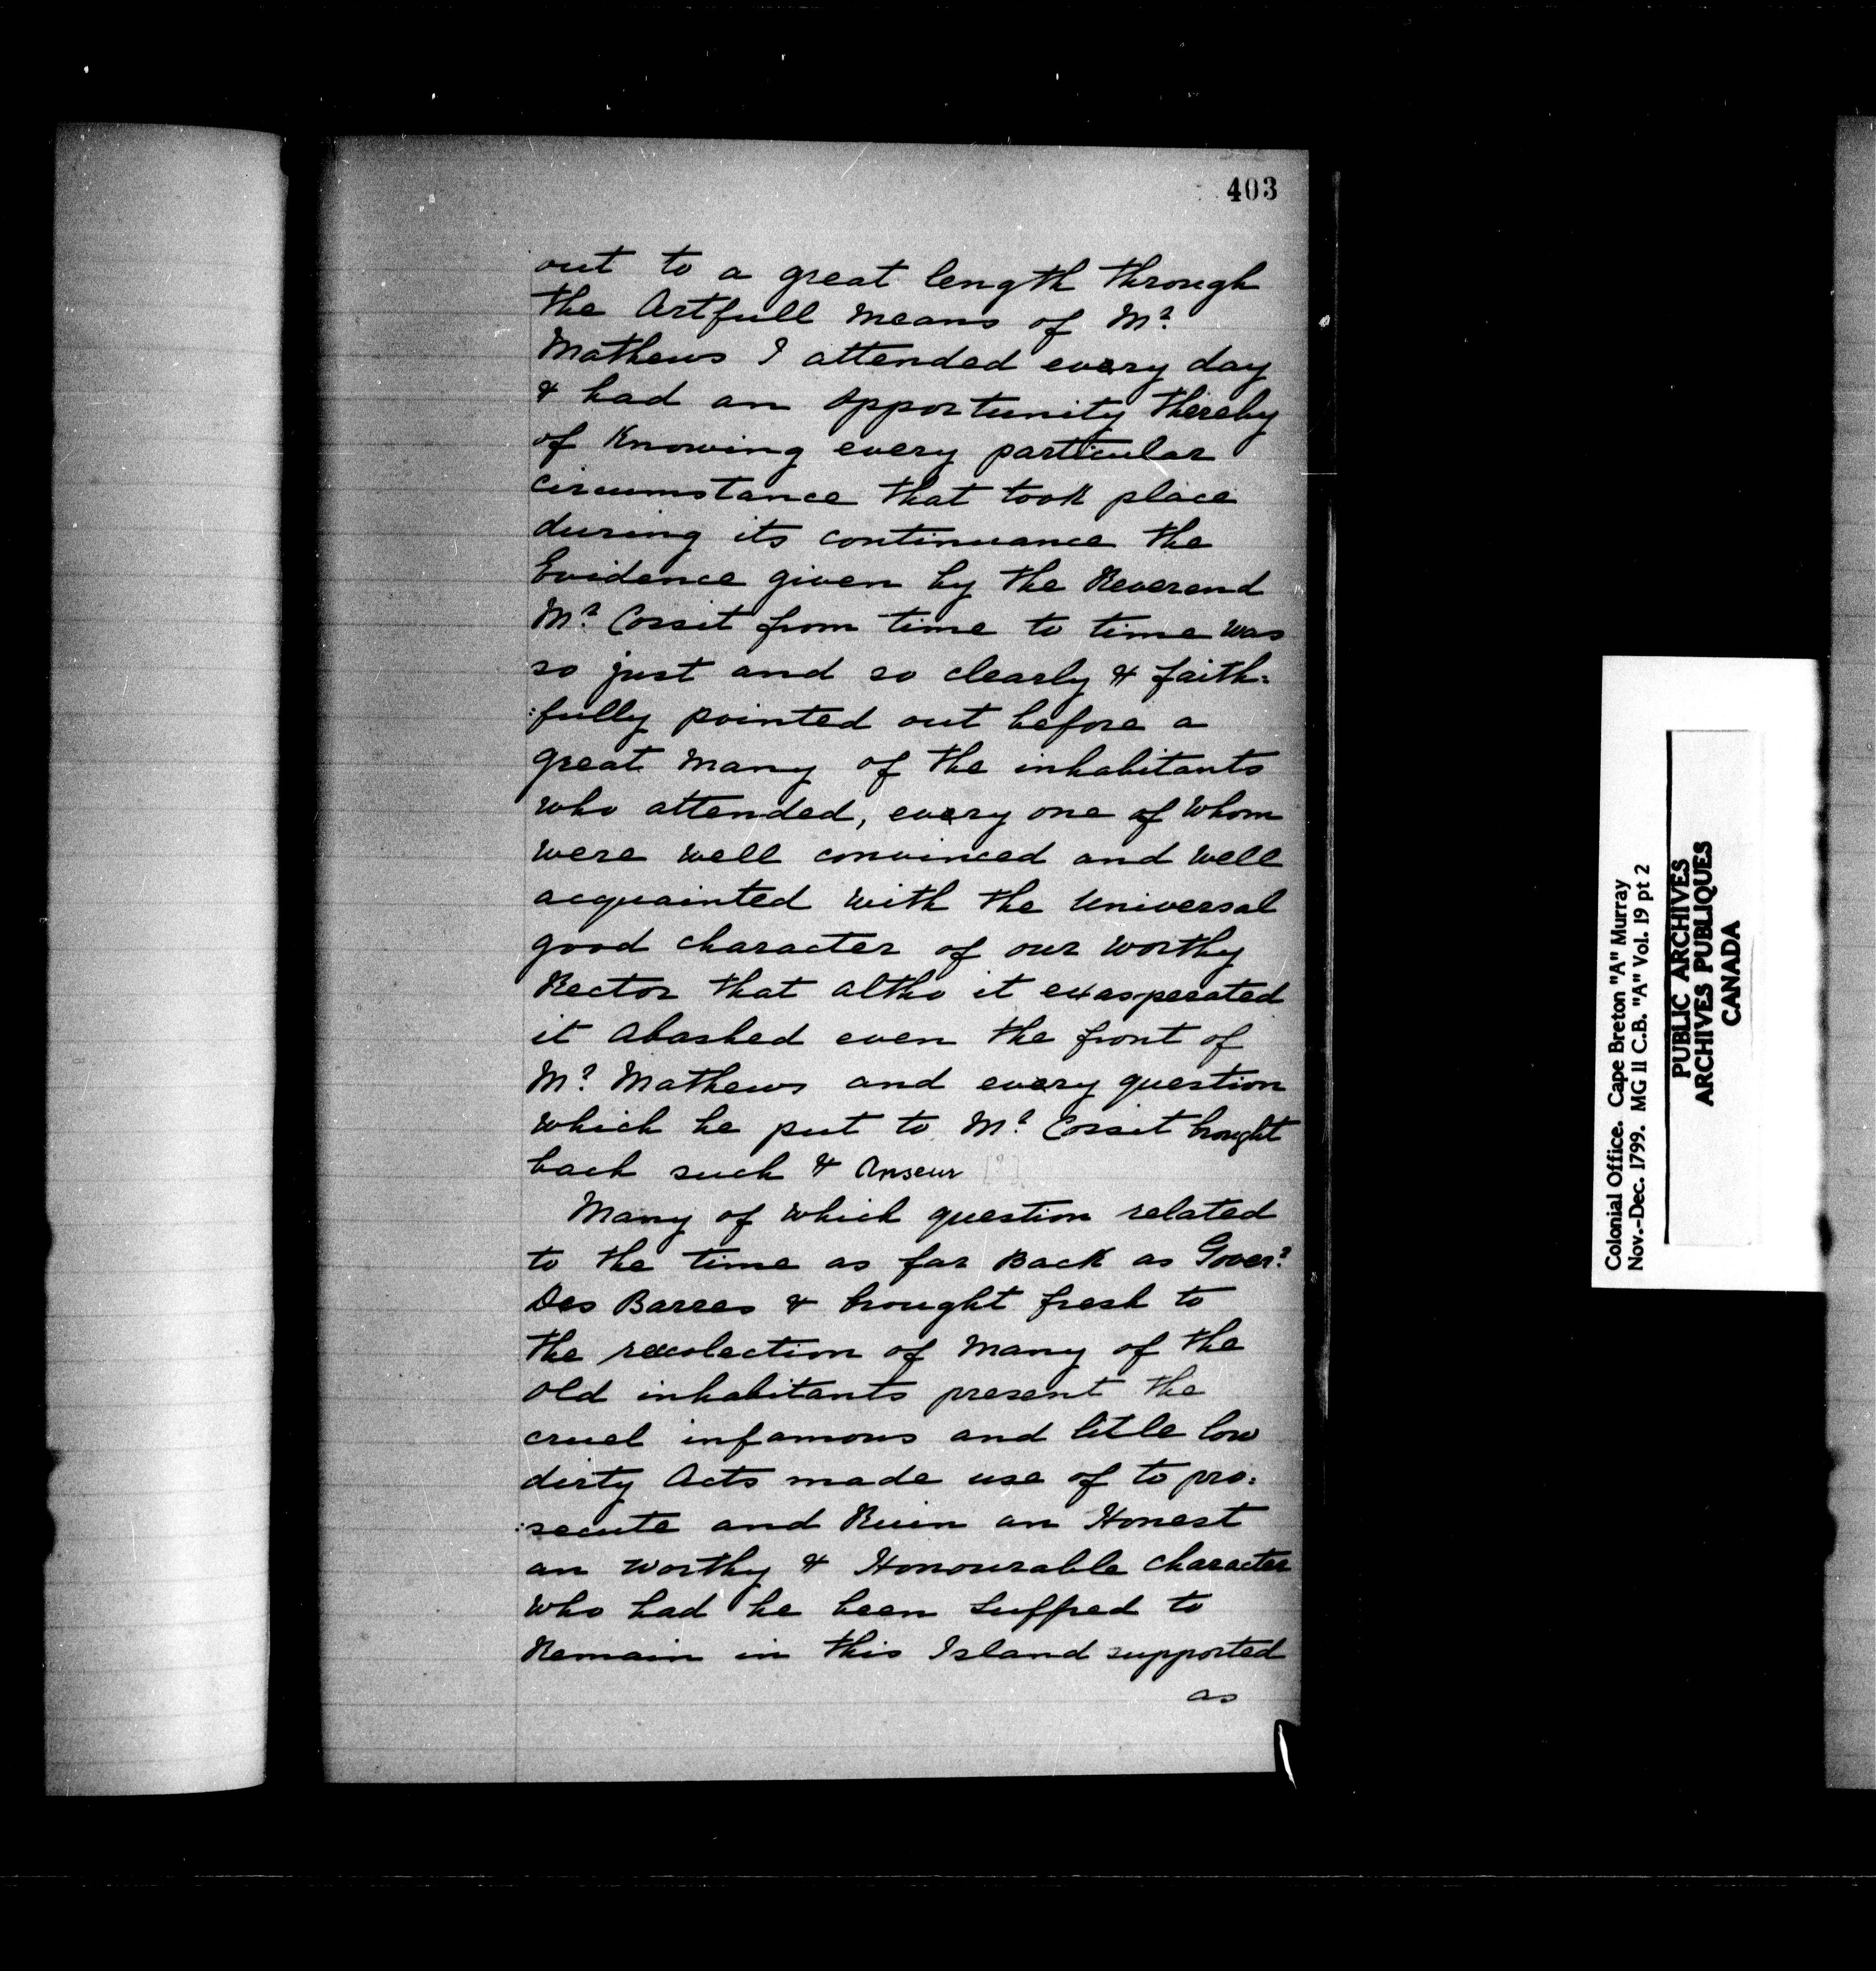 403
out to a great length through
the Artfull means of Mr.
Mathews I attended every day
& had an opportunity thereby
of Knowing every particular
circumstance that took place
during its continuance the
Evidence given by the Reverend
Mr. Cossit from time to time was
so just and so clearly & faith=
:fully pointed out before a
great many of the inhabitants
who attended, every one of whom
were well convinced and well
acquainted with the Universal
good character of our worthy
Rector that altho it exasperated
it abashed even the front of
Mr. Mathews and every question
which he put to Mr. Cossit brought
back such & Anseur [?]
Many of which question related
to the time as far Back as Goverr.
Des Barres & brought fresh to
the recolection of many of the
old inhabitants present the
cruel infamous and litle low
dirty Acts made use of to pro=
:secute and Ruin an Honest
an worthy & Honourable character
who had he been suffred to
Remain in this Island supported
as
Colonial Office. Cape Breton "A" Murray
Nov.-Dec. 1799. MG 11 C.B. "A" Vol. 19 pt 2
PUBLIC ARCHIVES
ARCHIVES PUBLIQUES
CANADA